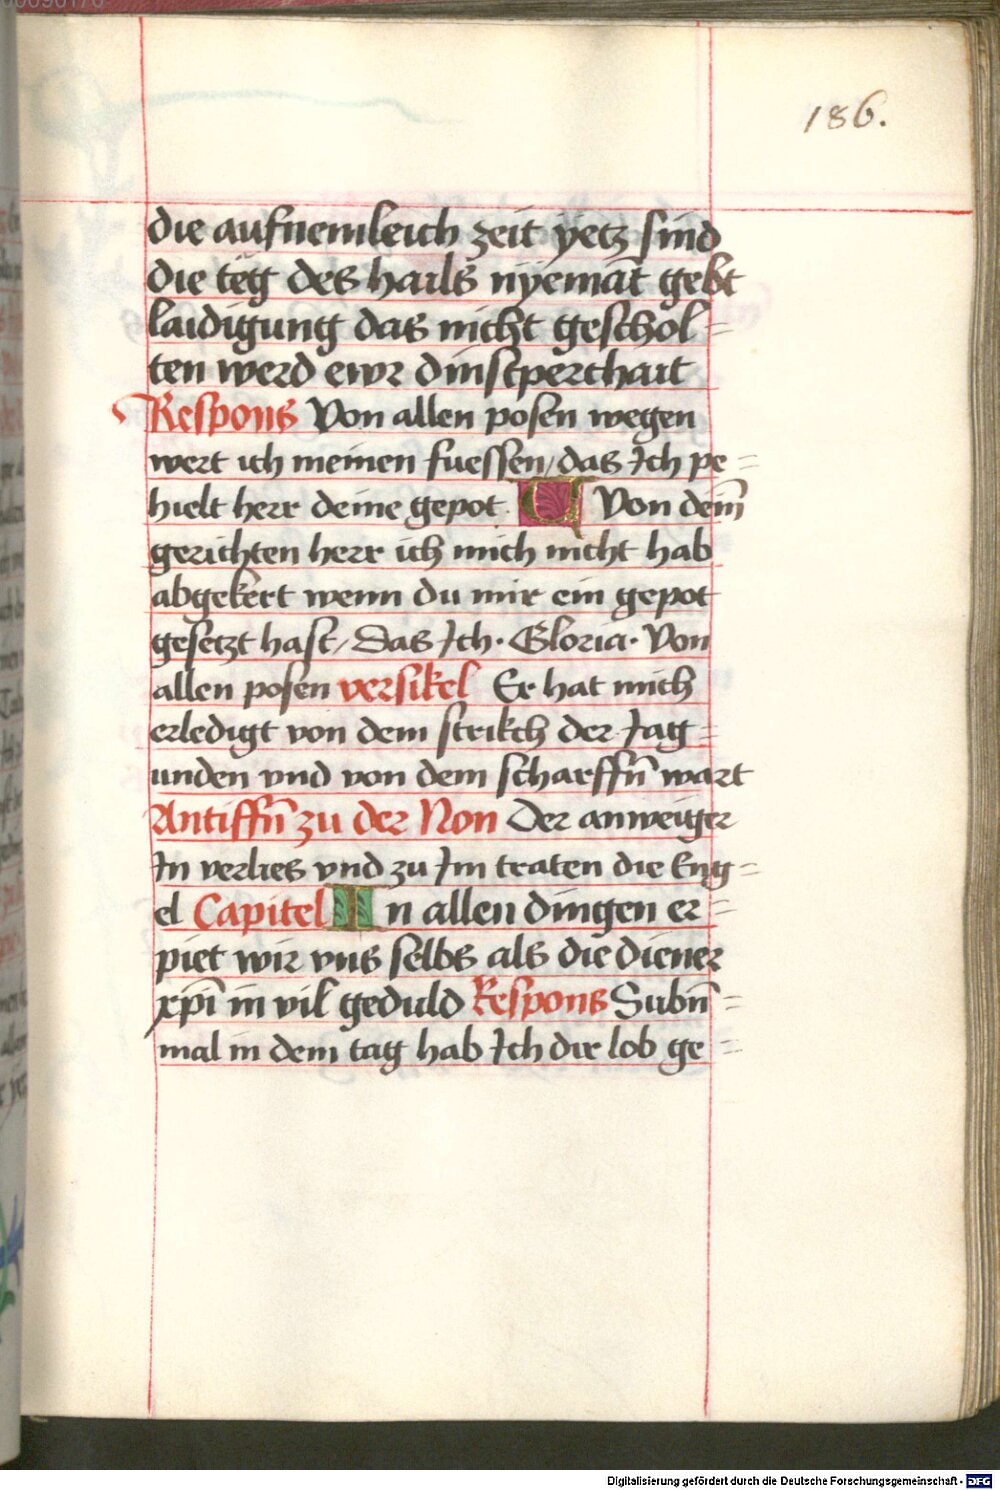 186.
die aufnemleich zeit yetz sind
die teg des hails nyemāt gebt
laidigung das nicht geschol=
ten werd ewr dinstperchait
Respons Von allen posen wegen
wert ich meinen fuessen/ das Ich pe=
hielt herr deine gepot V Von deim̄
gerichten herr ich mich nicht hab
abgekert wenn du mir ein gepot
gesetzt hast/ Das Ich. Gloria. Von
allen posen versikel Er hat mich
erledigt von dem strikch der Jag=
unden vnd von dem scharffn̄ wart
Antiffn̄ zu der Non Der anweiger
In verlies vnd zu Im traten die Eng=
el Capitel In allen dingen er=
piet wir vns selbs als die diener
xp̄i in vil geduld Respons Subn̄=
mal in dem tag hab Ich die lob ge=
Digitalisierung gefördert durch die Deutsche Forschungsgemeinschaft - DFG